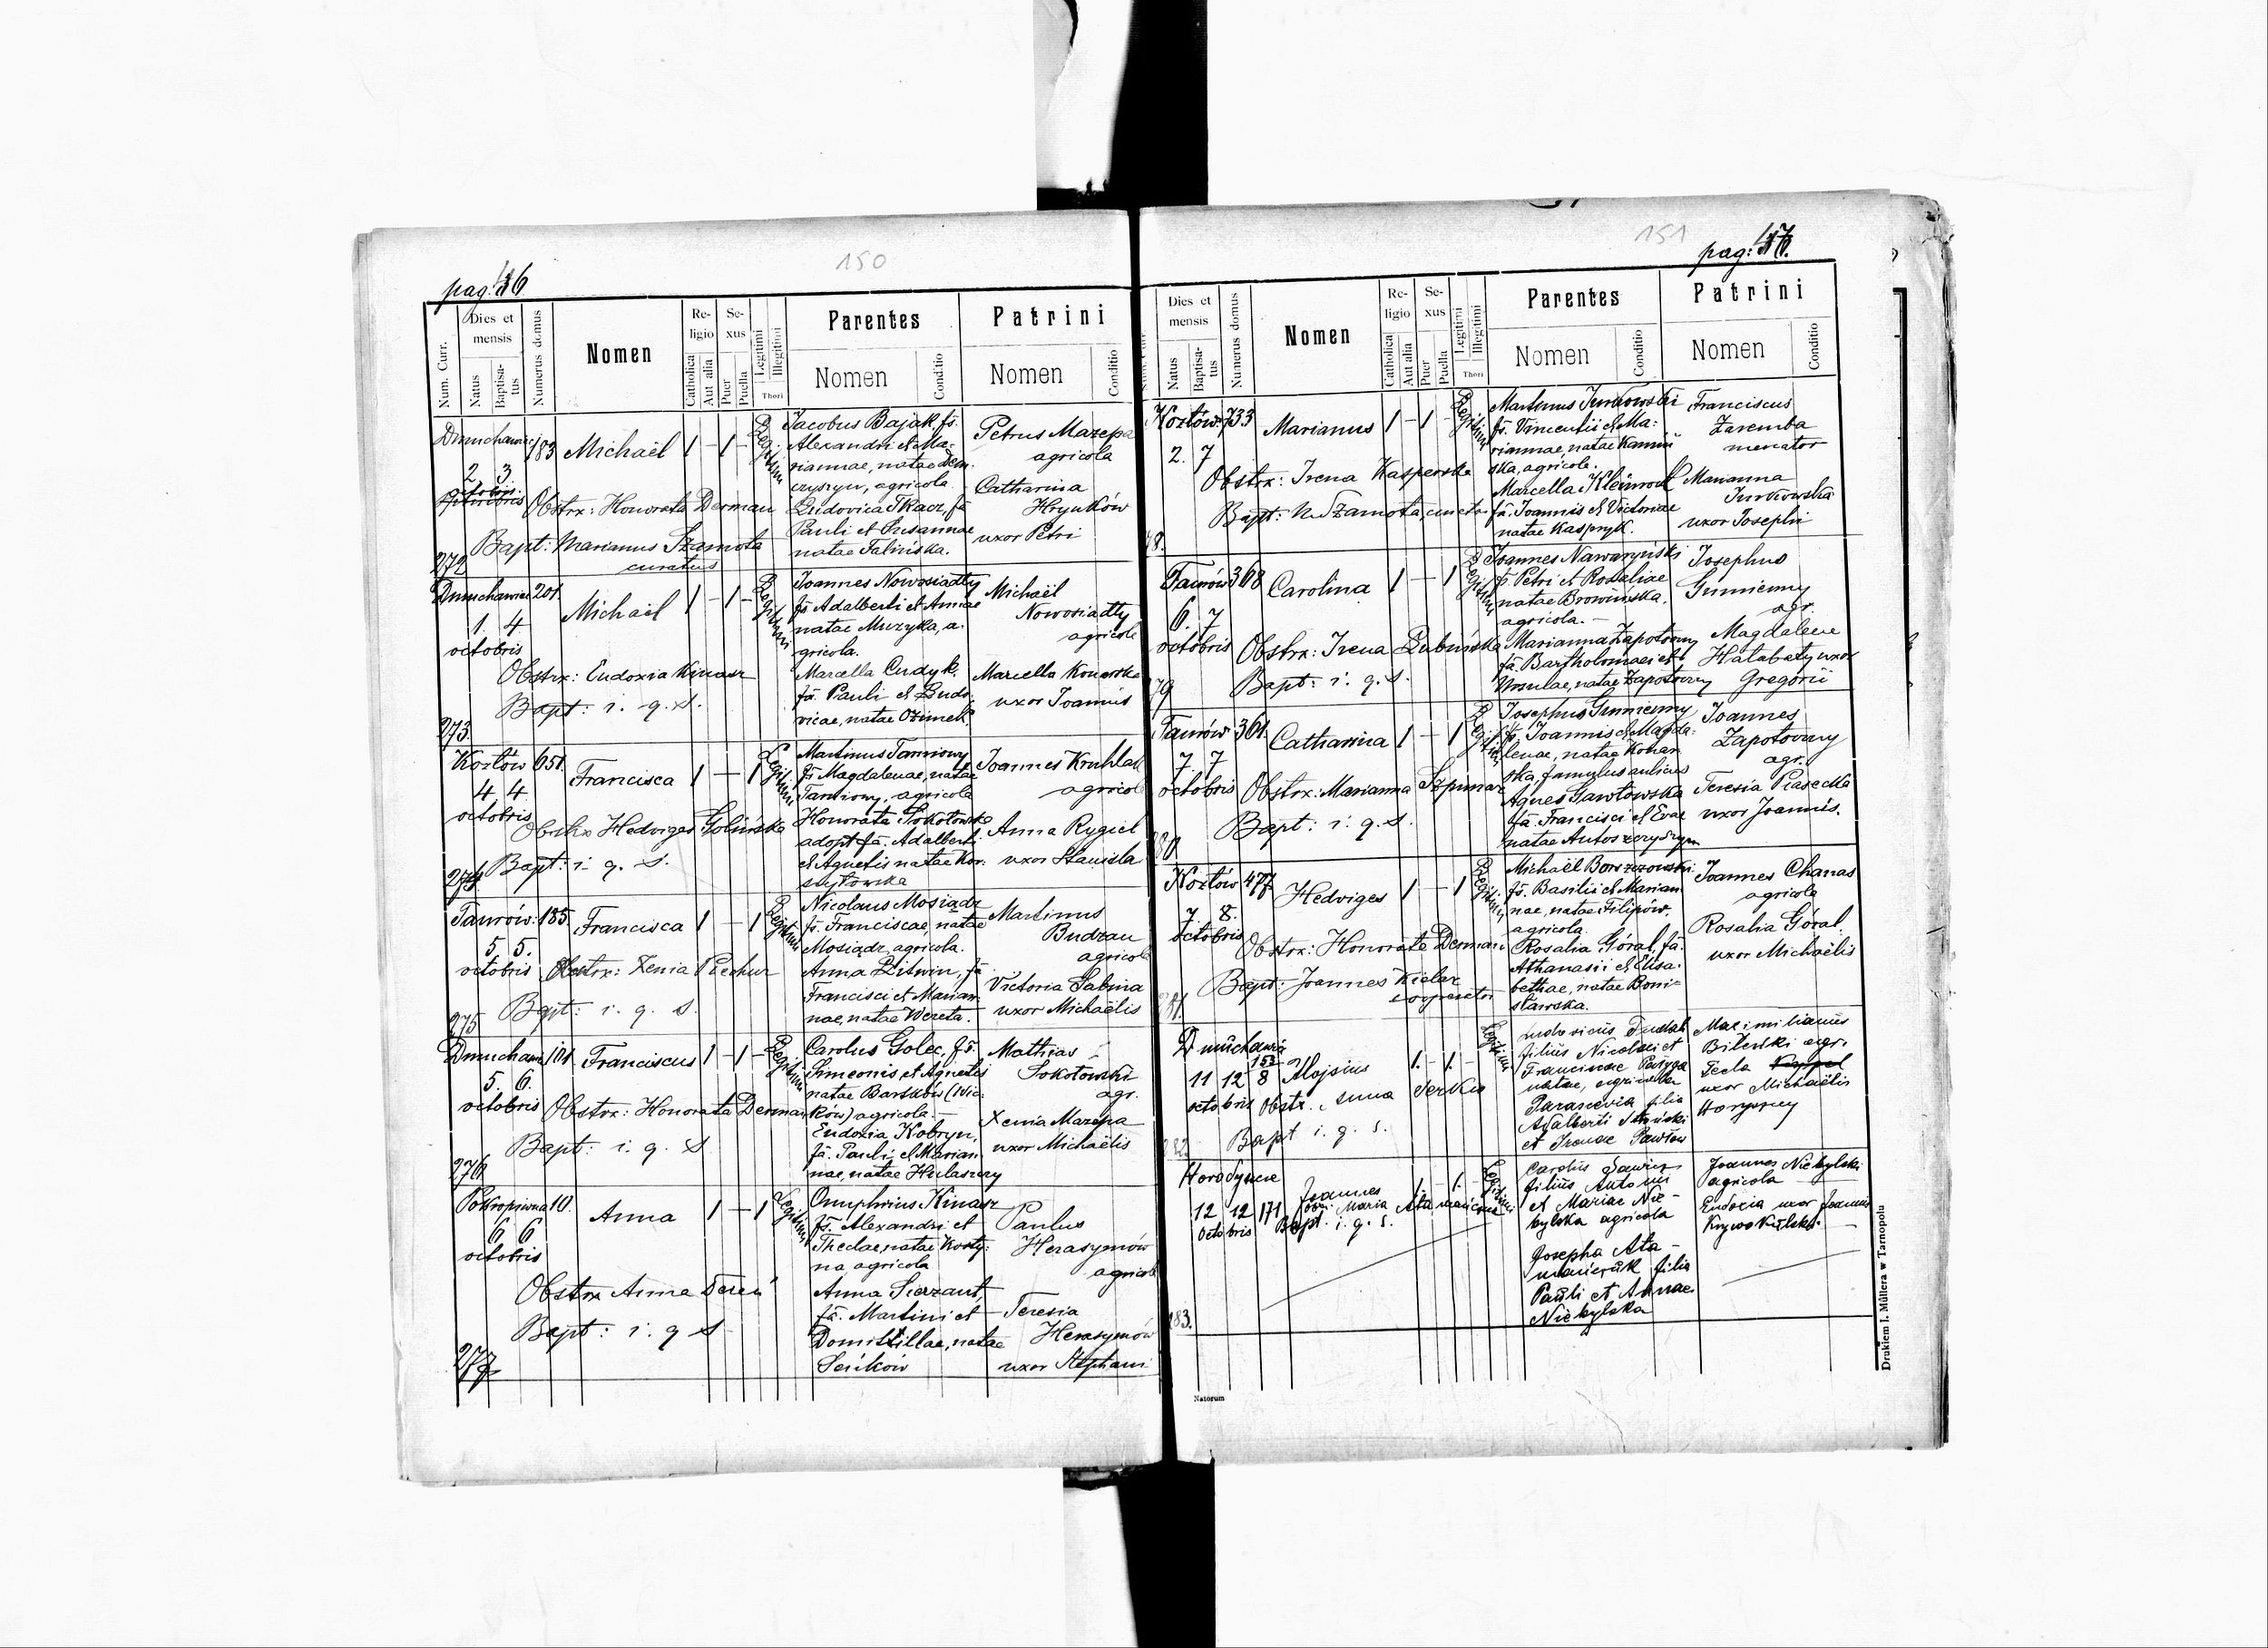 150
pag: 46
Num. Curr.
Dies et mensis
Natus
Baptisatus
Numerus domus
Nomen
Religio
Catholica
Aut alia
Sexus
Puer
Puella
Legitimi
Illegitimi
Thori
Parentes
Nomen
Conditio
Patrini
Nomen
Conditio
183 Michaël 1 – 1 – Legitimi
2 3
octobris
Obstrx: Honorata Derman
Bapt: Marianus Szamota
curatus
272
Jacobus Bajak, fs.
Alexandri et Ma-
riannae, natae Dem-
czyszyn, agricola
Ludovica Tkacz, fa
Pauli et Susannae
natae Falińska.
Petrus Mazepa
agricola
Catharina
Hryńków
uxor Petri
Dmuchawiec 201
Michaël 1 – 1 – Legitimi
1 4
octobris
Obstrx: Eudoxia Kinasz
Bapt: i. q. S.
273.
Joannes Nowosiadły
fs Adalberti et Annae
natae Muzyka, a-
gricola.
Marcella Cudyk,
fa. Pauli et Ludo-
vicae, natae Ozimek
Michaël
Nowosiadły
agricola
Marcella Konorska
uxor Joannis
Kozłów 651.
Francisca 1 – 1 Legitimi
4 4
octobris
Obstrx Hedviges Golińska
Bapt: i. q. S.
274
fs Magdalenae, natae
agricola
Honorata Sokołowska
adopt. fa. Adalberti
et Agnetis natae Kor-
Joannes Kruhlak
agricola
Anna Rygiel
uxor Stanisla
Taurów: 185. Francisca 1 – 1 Legitimi
5 5.
octobris Obstrx: Xenia Piechur
Bapt: i. q. S.
275
Nicolaus Mosiądz
fs. Franciscae, natae
Mosiądz, agricola.
Anna Litwin, fa
Francisci et Marian-
nae, natae Wereta.
Martinus
Budzan
agricola
Victoria Sabina
uxor Michaëlis
101 Franciscus 1 – 1 – Legitimi
5. 6.
octobris Obstrx: Honorata Derman
Bapt: i. q. S
276
Carolus Golec, fs.
Simeonis et Agnetis
natae Barsków (Nic-
ków) agricola. –
Eudoxia Kobryn,
fa. Pauli et Marian-
nae, natae Hulaszczy
Mathias
Sokołowski
agr.
Xenia Mazepa
uxor Michaëlis
Pokropiwna 10.
Anna 1 – 1 Legitimi
6 6
octobris
Obstrx Anna Dereń
Bapt: i. q S
277
Onuphrius Kinasz
fs. Alexandri et
Theclae, natae Kosty-
na agricola
Anna Sierżant,
fa. Martini et
Domitillae, natae
Seńków
Paulus
Herasymów
agricola
Teresia
Herasymów
uxor Stephani
151
pag: 47.
Dies et mensis
Natus
Baptisatus
Numerus domus
Nomen
Religio
Catholica
Aut alia
Sexus
Puer
Puella
Legitimi
Illegitimi
Thori
Parentes
Nomen
Conditio
Patrini
Nomen
Conditio
Kozłów 733
Marianus 1 – 1 Legitimi
2. 7
Obstrx: Irena Kasperska
Bapt: M Szamota, curatus
78.
Martinus Jurkowski
fs. Vincentii et Ma-
riannae, natae Kamiń-
ska, agricola.
Marcella Kleinrod
fa. Joannis et Victoriae
natae Kaspryk.
Franciscus
Zaremba
mercator
Marianna
Jurkowska
uxor Josephi
Taurów 368
Carolina 1 – 1 Legitimi
6. 7
octobris Obstrx: Irena Łubińska
Bapt: i. q. S.
79
Joannes Nawaryński
fs Petri et Rosaliae
natae Browińska,
agricola. –
Marianna Zapotoczny
fa. Bartholomaei et
Ursulae, natae Zapotoczny
Josephus
Gumienny
agr.
Magdalene
Hałabaty uxor
Gregorii
Taurów 361.
Catharina 1 – 1 Legitimi
7 7
octobris Obstrx: Marianna Szpunar
Bapt: i. q. S.
80
Josephus Gumienny
fs. Joannis et Magda-
lenae, natae Kohan-
ska, famulus aulicus
Agnes Gawłowska
fa. Francisci et Evae
natae Antoszczyszyn
Joannes
Zapotoczny
agr.
Teresia Piasecka
uxor Joannis.
Kozłów 477
Hedviges 1 – 1 Legitimi
7. 8.
octobris Obstrx: Honorata Derman
Bapt: Joannes Kielar
cooperator
281.
Michaël Borszczowski
fs. Basilii et Marian-
nae, natae Filipów,
agricola
Rosalia Góral, fa.
Athanasii et Elisa-
bethae, natae Broni-
sławska.
Joannes Chanas
agricola
Rosalia Góral
uxor Michaëlis
153
11 12 8 Alojsius 1. – 1. – Legitimi
octobris Obstr. Anna Serkis
Bapt i. q. s.
282.
Ludovicus Dudak
filius Nicolai et
Franciscae
natae, agricola
Parascevia filia
Adalberti
et Irenae Pawłow
Maximilianus
Biterski agr.
Tecla
uxor Michaëlis
Horodyszcze
12 12 171 Joannes 1. – 1. – Legitimi
octobris Bapt. i. q. s.
283.
Carolus Sawicz
filius Antonii
et Mariae Nie-
bylska agricola
Josepha Ata-
mańczuk filia
Pauli et Annae
Niebylska
Joannes Niebylski
agricola
Eudocia uxor Joannis
Natorum
Drukiem J. Müllera w Tarnopolu